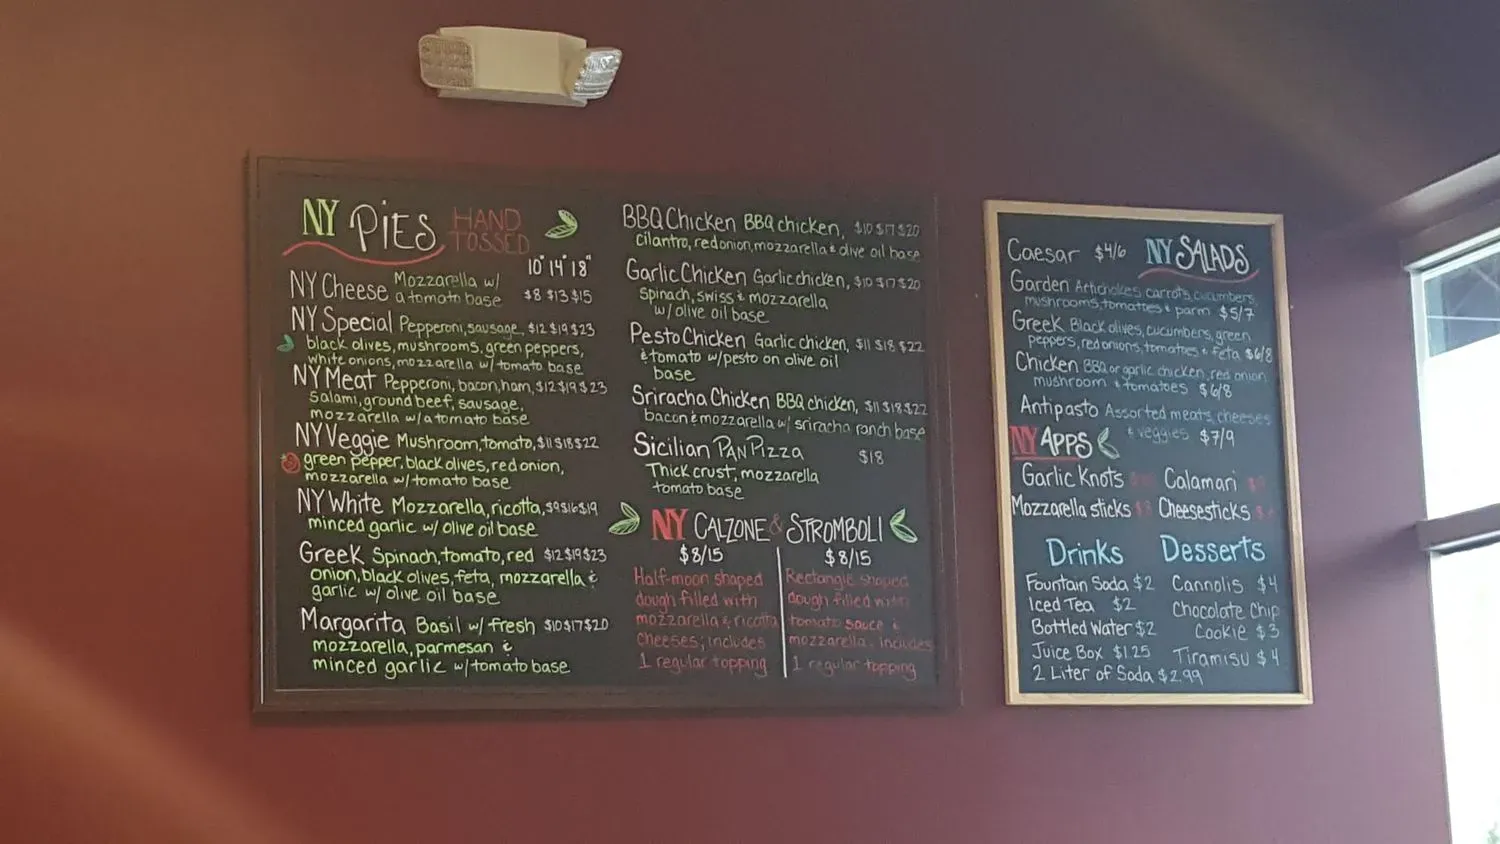 NY PIES HAND TOSSED
10" 14" 18"
NY Cheese Mozzarella w/
a tomato base $8 $13 $15
NY Special Pepperoni, sausage, $12 $19 $23
black olives, mushrooms, green peppers,
white onions, mozzarella w/ tomato base
NY Meat Pepperoni, bacon, ham, $12 $19 $23
Salami, ground beef, sausage,
mozzarella w/ a tomato base
NY Veggie Mushroom, tomato, $11 $18 $22
green pepper, black olives, red onion,
mozzarella w/ tomato base
NY White Mozzarella, ricotta, $9 $16 $19
minced garlic w/ olive oil base
Greek Spinach, tomato, red $12 $19 $23
onion, black olives, feta, mozzarella &
garlic w/ olive oil base
Margarita Basil w/ fresh $10 $17 $20
mozzarella, parmesan &
minced garlic w/ tomato base
BBQ Chicken BBQ chicken, $10 $17 $20
cilantro, red onion, mozzarella & olive oil base
Garlic Chicken Garlic chicken, $10 $17 $20
Spinach, swiss & mozzarella
w/ olive oil base
Pesto Chicken Garlic chicken, $11 $18 $22
& tomato w/ pesto on olive oil
base
Sriracha Chicken BBQ chicken, $11 $18 $22
bacon & mozzarella w/ sriracha ranch base
Sicilian Pan Pizza $18
Thick crust, mozzarella
tomato base
NY CALZONE & STROMBOLI
$8/15
Half-moon shaped
dough filled with
mozzarella & ricotta
cheeses; includes
1 regular topping
$8/15
Rectangle shaped
dough filled with
tomato sauce &
mozzarella. Includes
1 regular topping
NY SALADS
Caesar $4/6
Garden Artichokes carrots, cucumbers,
mushrooms, tomatoes & parm $5/7
Greek Black olives, cucumbers, green
peppers, red onions, tomatoes & feta $6/8
Chicken BBQ or garlic chicken, red onion
mushroom & tomatoes $6/8
Antipasto Assorted meats, cheeses
& veggies $7/9
NY APPS
Garlic Knots
Calamari
Mozzarella sticks
Cheesesticks
Drinks
Fountain Soda $2
Iced Tea $2
Bottled Water $2
Juice Box $1.25
2 Liter of Soda $2.99
Desserts
Cannolis $4
Chocolate Chip
Cookie $3
Tiramisu $4